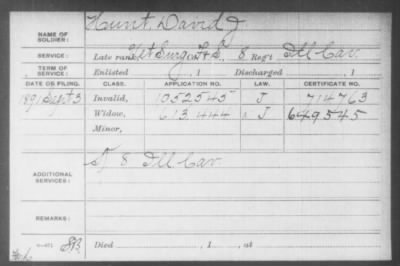 NAME OF SOLDIER: Hunt, David J.
SERVICE: Late rank, Vet Surg Co. F & S, 8 Reg't Ill Cav.
TERM OF SERVICE: Enlisted , 1 Discharged , 1
DATE OF FILING. CLASS. APPLICATION NO. LAW. CERTIFICATE NO.
1891 Sept 3 Invalid, 1052545 J 714763
Widow, 613,444 J 649545
Minor,
ADDITIONAL SERVICES: 8 Ill Cav
REMARKS:
Died , 1 , at